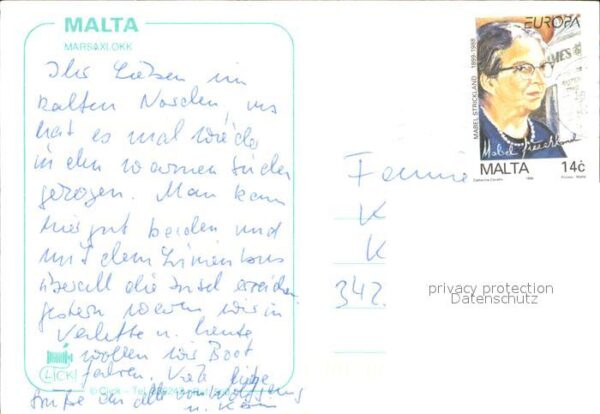 MALTA
MARSAXLOKK
Ihr Lieben im
kalten Norden, uns
hat es mal wieder
in den warmen Süden
gezogen. Man kann
hier gut baden und
mit dem Linienbus
überall die Insel erreichen.
gestern waren wir in
Valetta u. heute
wollen wir Boot
fahren. Viele liebe
Grüße an alle von Wolfgang
u.
CLICK!
© Click - Tel.
EUROPA
MABEL STRICKLAND 1899-1988
Mabel Strickland
MALTA 14c
Familie
K
K
342.
privacy protection
Datenschutz